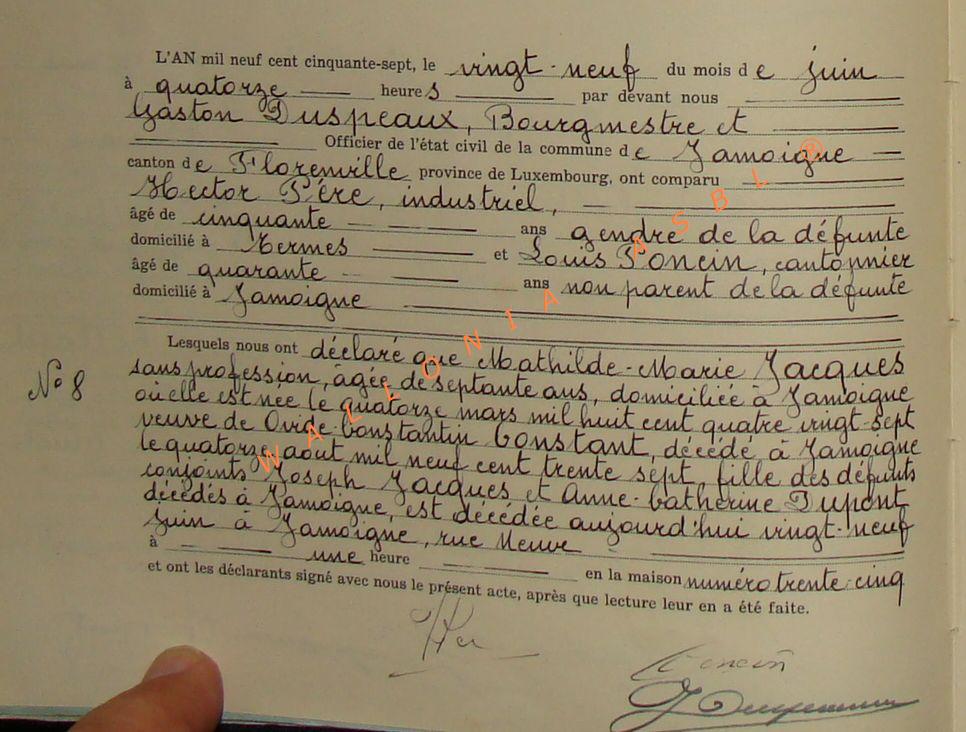 L'AN mil neuf cent cinquante-sept, le vingt-neuf du mois de juin
à quatorze heures par devant nous
Gaston Duspeaux, Bourgmestre et
Officier de l'état civil de la commune de Jamoigne
canton de Florenville province de Luxembourg, ont comparu
Hector Père, industriel,
âgé de cinquante ans gendre de la défunte
domicilié à Termes et Louis Poncin, cantonnier
âgé de quarante ans non parent de la défunte
domicilié à Jamoigne
Lesquels nous ont déclaré que Mathilde-Marie Jacques
N° 8
sans profession, âgée de septante ans, domiciliée à Jamoigne
où elle est née le quatorze mars mil huit cent quatre vingt-sept
veuve de Ovide-Constantin Constant, décédé à Jamoigne
le quatorze août mil neuf cent trente sept, fille des défunts
conjoints Joseph Jacques et Anne-Catherine Dupont
décédés à Jamoigne, est décédée aujourd'hui vingt-neuf
juin à Jamoigne, rue Neuve
à une heure en la maison numéro trente-cinq
et ont les déclarants signé avec nous le présent acte, après que lecture leur en a été faite.
Poncin
WALLONIA ASBL ®